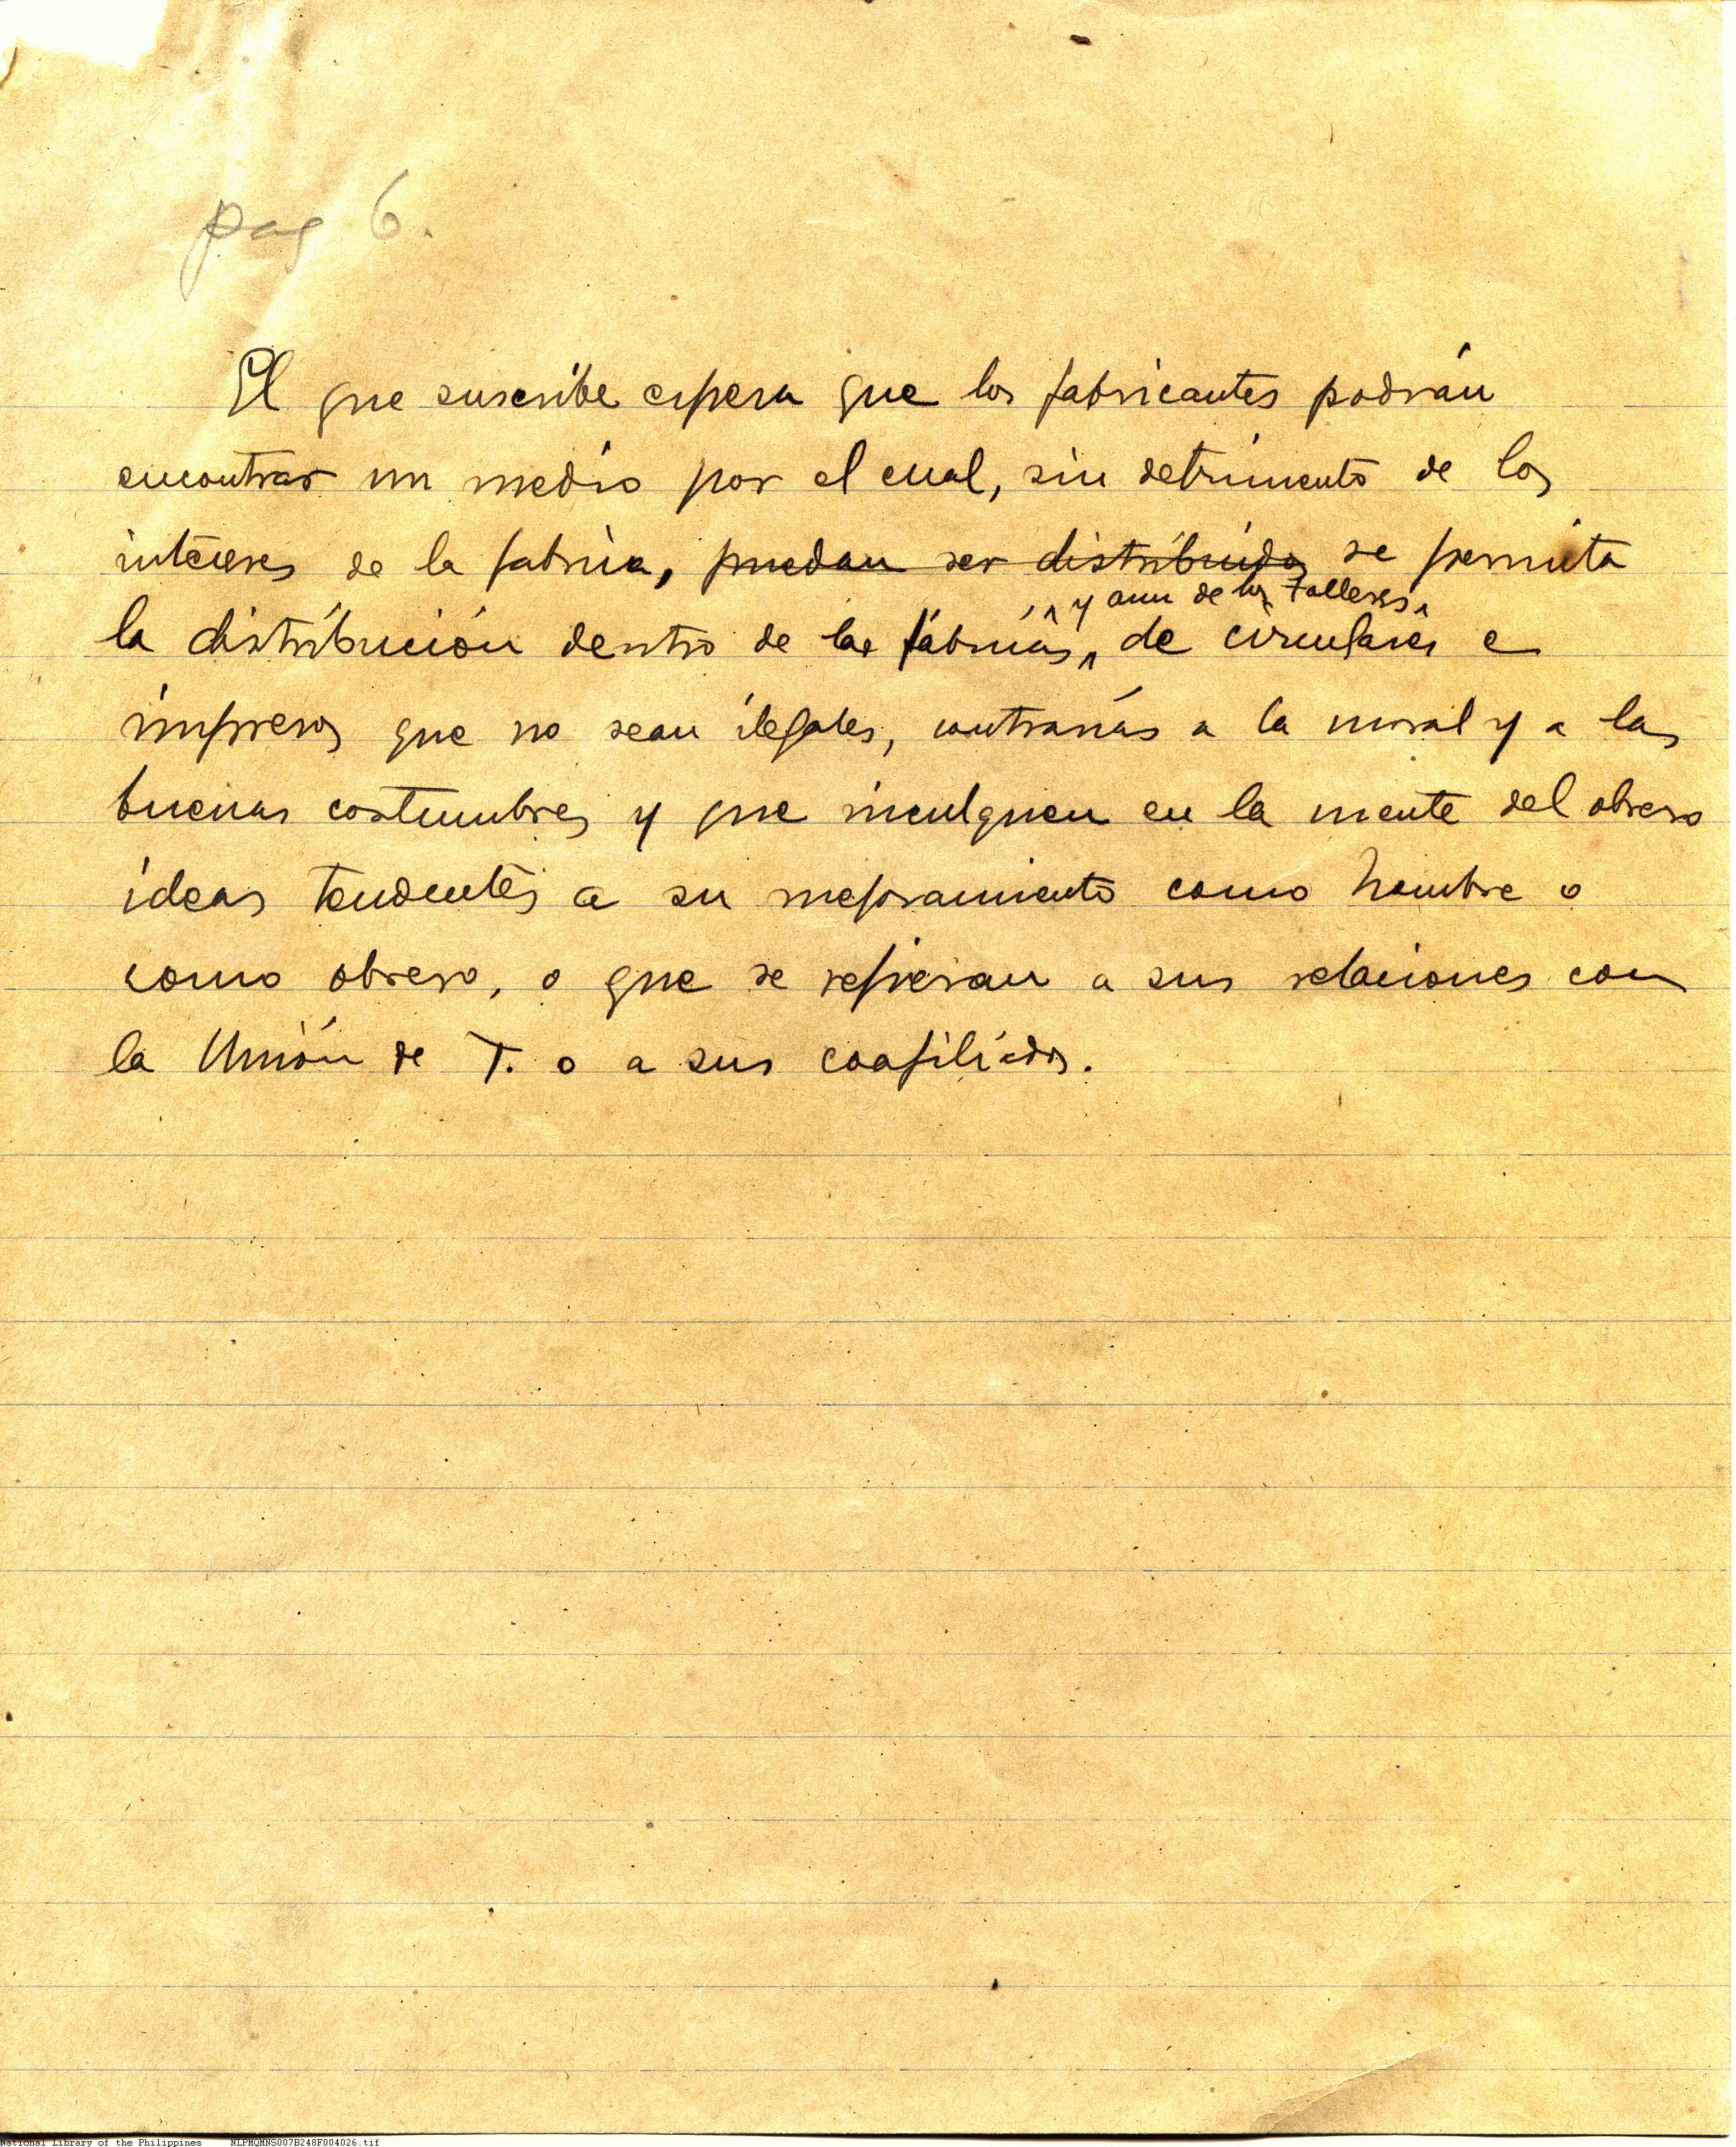 pag 6.
El que suscribe espera que los fabricantes podrán
encontrar un medio por el cual, sin detrimento de los
intereses de la fabrica, puedan ser distribuidos se permita
y aun de los talleres
la distribución dentro de las fábricas, de circulares e
impresos que no sean ilegales, contrarias a la moral y a las
buenas costumbres y que inculquen en la mente del obrero
ideas tendentes a su mejoramiento como hombre o
como obrero, o que se refieran a sus relaciones con
la Unión de T. o a sus coafiliados.
National Library of the Philippines NLPMQMNS007B248F004026.tif